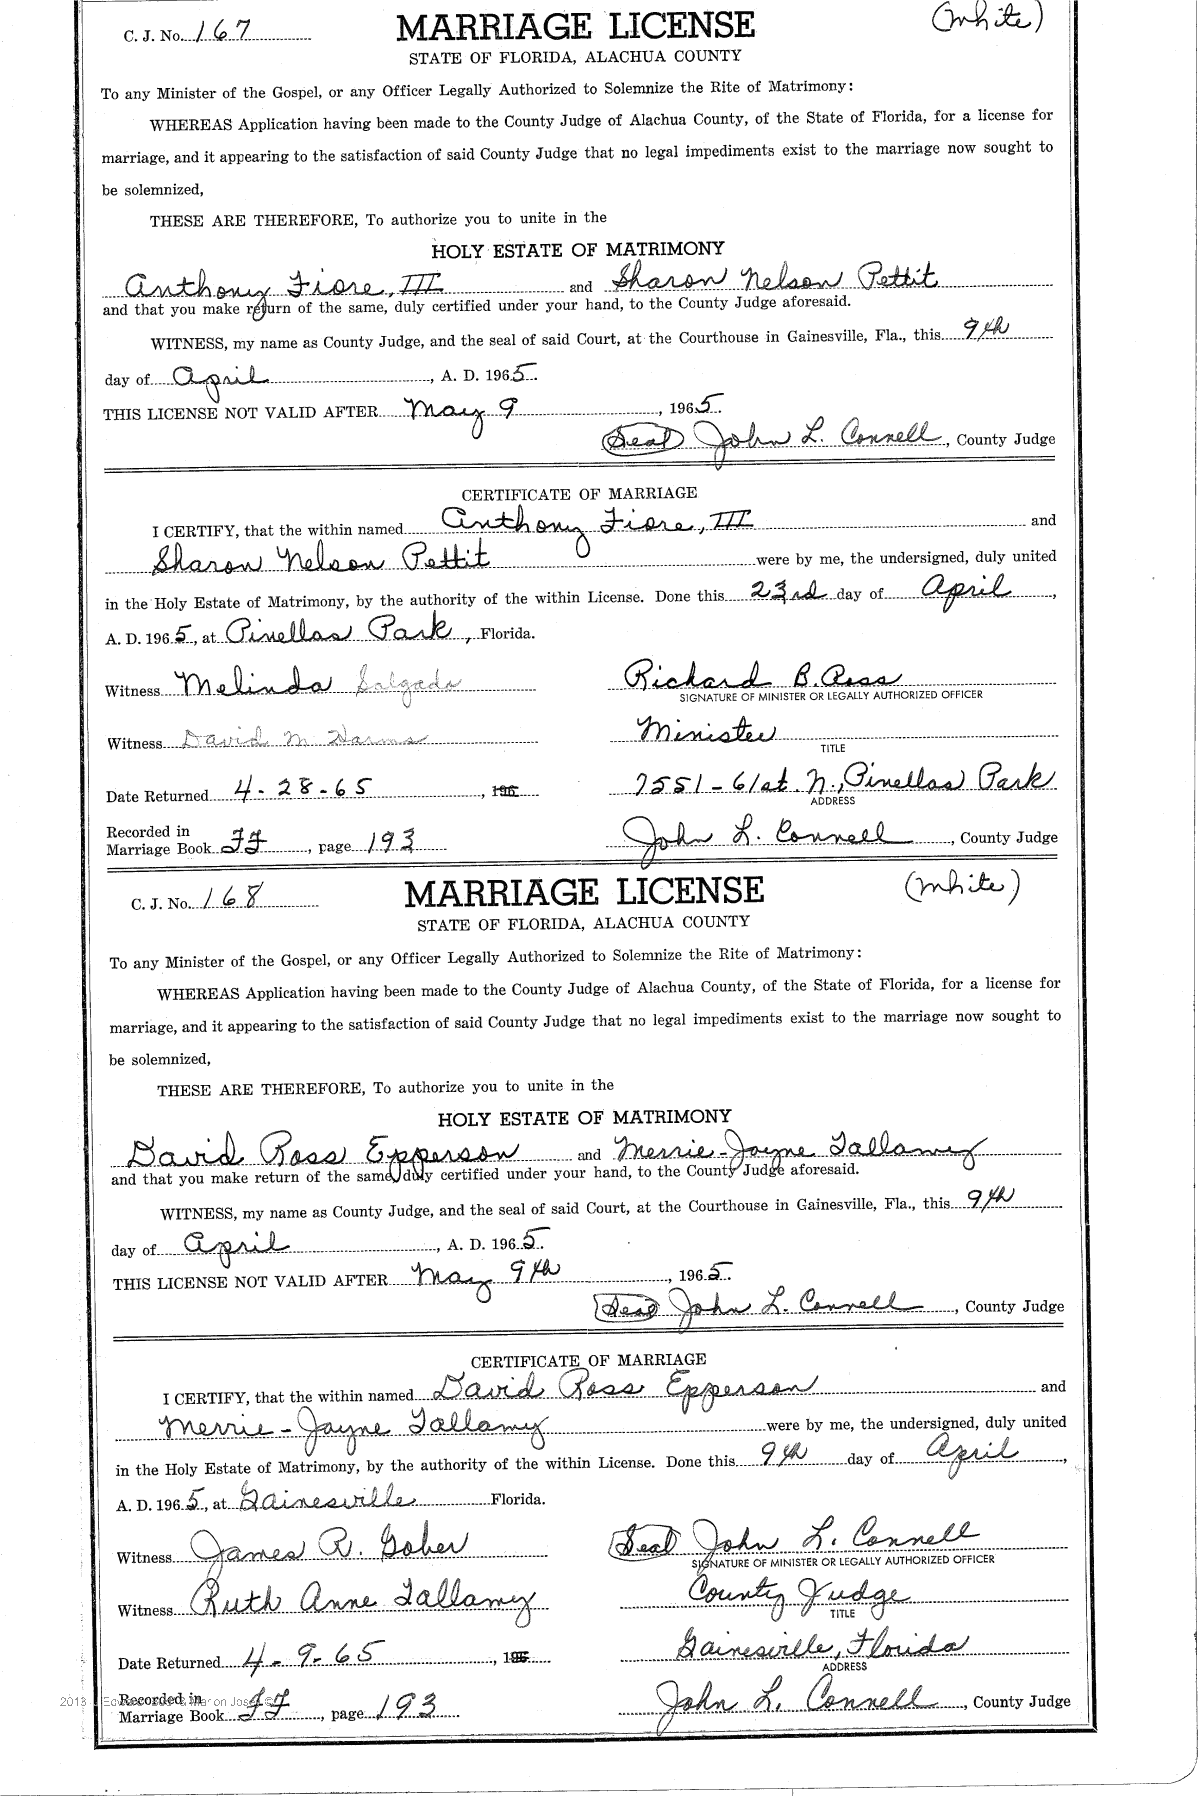 C. J. No. 167 MARRIAGE LICENSE (White)
STATE OF FLORIDA, ALACHUA COUNTY
To any Minister of the Gospel, or any Officer Legally Authorized to Solemnize the Rite of Matrimony:
WHEREAS Application having been made to the County Judge of Alachua County, of the State of Florida, for a license for
marriage, and it appearing to the satisfaction of said County Judge that no legal impediments exist to the marriage now sought to
be solemnized,
THESE ARE THEREFORE, To authorize you to unite in the
HOLY ESTATE OF MATRIMONY
Anthony Fiore, III and Sharon Nelson Pettit
and that you make return of the same, duly certified under your hand, to the County Judge aforesaid.
WITNESS, my name as County Judge, and the seal of said Court, at the Courthouse in Gainesville, Fla., this 9th
day of April, A. D. 1965.
THIS LICENSE NOT VALID AFTER May 9, 1965.
(Seal) John L. Connell, County Judge
CERTIFICATE OF MARRIAGE
I CERTIFY, that the within named Anthony Fiore, III and
Sharon Nelson Pettit were by me, the undersigned, duly united
in the Holy Estate of Matrimony, by the authority of the within License. Done this 23rd day of April,
A. D. 1965, at Pinellas Park, Florida.
Witness Melinda Salgado Richard B. Ross
SIGNATURE OF MINISTER OR LEGALLY AUTHORIZED OFFICER
Witness David M Harms Minister
TITLE
Date Returned 4-28-65, 196 7551-61st. N., Pinellas Park
ADDRESS
Recorded in
Marriage Book JJ, page 193 John L. Connell, County Judge
C. J. No. 168 MARRIAGE LICENSE (White)
STATE OF FLORIDA, ALACHUA COUNTY
To any Minister of the Gospel, or any Officer Legally Authorized to Solemnize the Rite of Matrimony:
WHEREAS Application having been made to the County Judge of Alachua County, of the State of Florida, for a license for
marriage, and it appearing to the satisfaction of said County Judge that no legal impediments exist to the marriage now sought to
be solemnized,
THESE ARE THEREFORE, To authorize you to unite in the
HOLY ESTATE OF MATRIMONY
David Ross Epperson and Merrie-Jayne Tallamy
and that you make return of the same, duly certified under your hand, to the County Judge aforesaid.
WITNESS, my name as County Judge, and the seal of said Court, at the Courthouse in Gainesville, Fla., this 9th
day of April, A. D. 1965.
THIS LICENSE NOT VALID AFTER May 9th, 1965.
(Seal) John L. Connell, County Judge
CERTIFICATE OF MARRIAGE
I CERTIFY, that the within named David Ross Epperson and
Merrie-Jayne Tallamy were by me, the undersigned, duly united
in the Holy Estate of Matrimony, by the authority of the within License. Done this 9th day of April,
A. D. 1965, at Gainesville Florida.
Witness James R. Gober (Seal) John L. Connell
SIGNATURE OF MINISTER OR LEGALLY AUTHORIZED OFFICER
Witness Ruth Anne Tallamy County Judge
TITLE
Date Returned 4-9-65, 196 Gainesville, Florida
ADDRESS
Recorded in
Marriage Book JJ, page 193 John L. Connell, County Judge